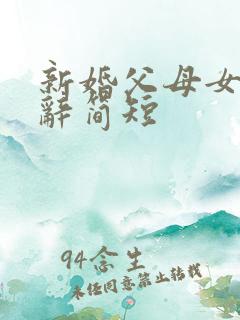 新婚父母女
辭简短
94念生
未经同意禁止转载